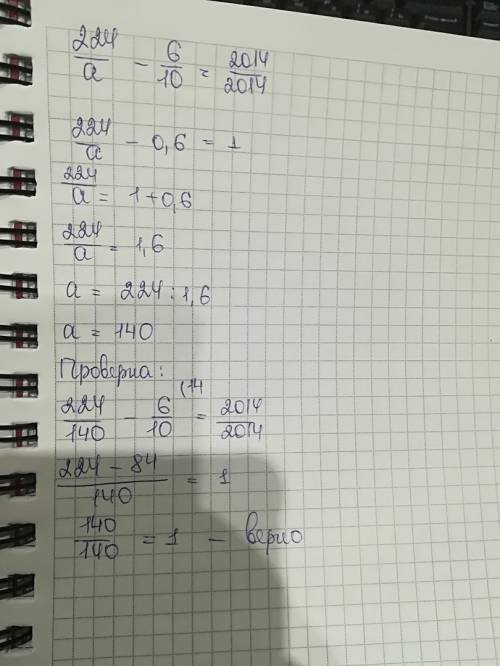 224/a - 6/10 = 2014/2014
224/a - 0,6 = 1
224/a = 1+0,6
224/a = 1,6
a = 224:1,6
a = 140
Проверка:
224/140 - 6/10 (14 = 2014/2014
224-84/140 = 1
140/140 = 1 - верно